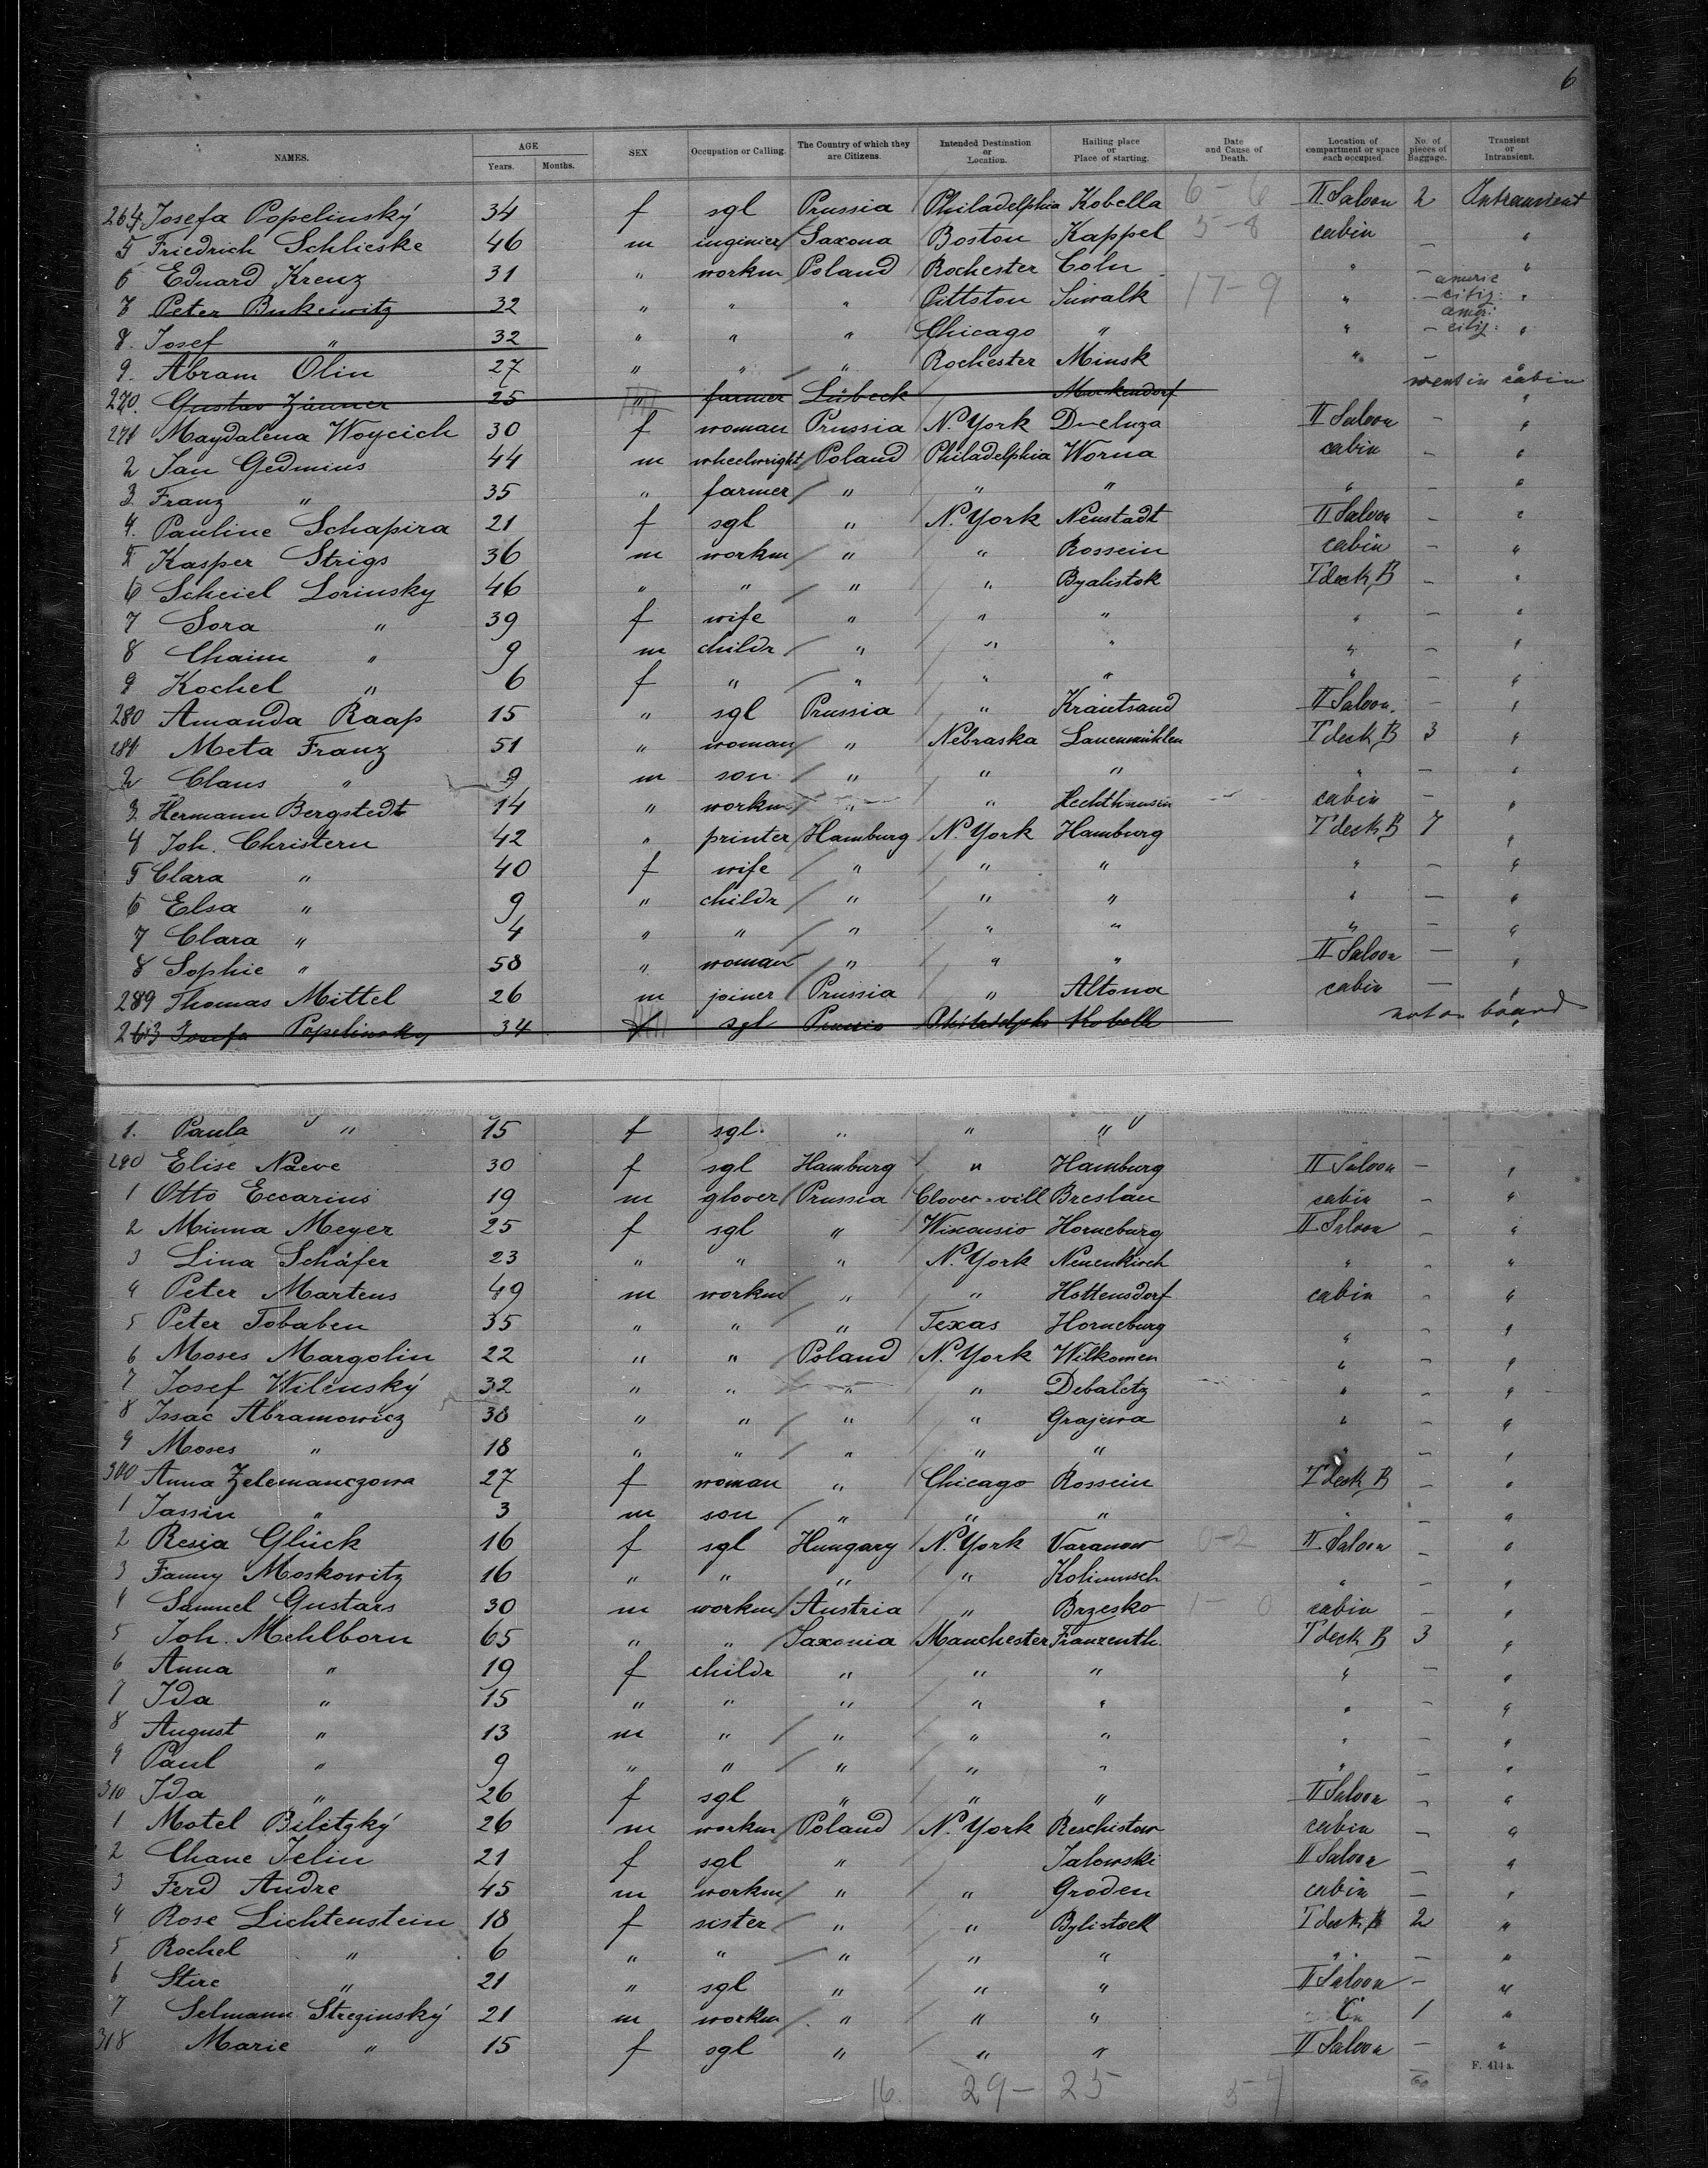 6
NAMES. AGE Years. Months. SEX Occupation or Calling. The Country of which they are Citizens. Intended Destination or Location. Hailing place or Place of starting. Date and Cause of Death. Location of compartment or space each occupied. No. of pieces of Baggage. Transient or Intransient.
264 Josefa Popelinský 34 f sgl Prussia Philadelphia Kobella 6-6 II Saloon 2 Intransient
5 Friedrich Schlieske 46 m inginier Saxona Boston Kappel 5-8 cabin — "
6 Eduard Krenz 31 " workm Poland Rochester Coln " — "
7 Peter Bukewitz 32 " " " Pittston Suwalk 17-9 " — americ citiz: "
8. Josef " 32 " " " Chicago " " — amer: citiz: "
9. Abram Olin 27 " " " Rochester Minsk " —
270. Gustav Zänner 25 " farmer Lübeck Mockendorf went in cabin "
271 Maydalena Woycich 30 f woman Prussia N. York II Saloon - "
2 Jan Gedmins 44 m wheelwright Poland Philadelphia Worna cabin - "
3. Franz " 35 " farmer " " " " - "
4. Pauline Schapira 21 f sgl " N. York Neustadt II Saloon - "
5 Kasper Strigs 36 m workm " " Rossein cabin - "
6 Scheiel Lorinsky 46 " " " " Byalistok T deck B - "
7 Sora " 39 f wife " " " " - "
8 Chaim " 9 m childr " " " " - "
9 Kochel " 6 f " " " " " - "
280 Amanda Raap 15 " sgl Prussia " Krautsand II Saloon. - "
281 Meta Franz 51 " woman " Nebraska Lauenmühlen T deck B 3 "
2 Claus " 9 m son " " " " - "
3. Hermann Bergstedt 14 " workm " " Hechthausen cabin - "
4 Joh. Christern 42 " printer Hamburg N. York Hamburg T deck B 7 "
5 Clara " 40 f wife " " " " — "
6 Elsa " 9 " childr " " " " — "
7 Clara " 4 " " " " " " — "
8 Sophie " 58 " woman " " " II Saloon — "
289 Thomas Mittel 26 m joiner Prussia " Altona cabin — "
263 Josefa Popelinsky 34 f sgl Prussia Philadelphi Kobella not on board "
1. Paula " 15 f sgl. " " "
290 Elise Naeve 30 f sgl Hamburg " Hamburg II Saloon — "
1 Otto Eccarius 19 m glover Prussia Clover-vill Breslau cabin - "
2 Minna Meyer 25 f sgl " Wisconsio Horneburg II Saloon - "
3 Lina Schäfer 23 " " " N. York Neuenkirch " - "
4 Peter Martens 49 m workm " " Hottensdorf cabin - "
5 Peter Tobaben 35 " " " Texas Horneburg " - "
6 Moses Margolin 22 " " Poland N. York Wilkomen " - "
7 Josef Wilensky 32 " " " " Debaletz " - "
8 Issac Abramowicz 38 " " " " Grajewa " - "
9 Moses " 18 " " " " " " - "
300 Anna Zelemanczowa 27 f woman " Chicago Rossein T deck B - "
1 Jassin " 3 m son " " " " - "
2 Resia Glück 16 f sgl Hungary N. York Varanow 0-2 II Saloon - "
3 Fanny Moskowitz 16 " " " " " - "
4 Samuel Gustars 30 m workm Austria " Brzesko 1- 0 cabin - "
5 Joh. Mehlborn 65 " " Saxonia Manchester Franzenth. T deck B 3 "
6 Anna " 19 f childr " " " " - "
7 Ida " 15 " " " " " " - "
8 August " 13 m " " " " " - "
9 Paul " 9 " " " " " " - "
310 Ida " 26 f sgl " " " II Saloon - "
1 Motel Biletzký 26 m workm Poland N. York Reschistow cabin - "
2 Chane Jelin 21 f sgl " Jalowski II Saloon - "
3 Ferd Andre 45 m workm " " Groden cabin - "
4 Rose Lichtenstein 18 f sister " " Bylistock T deck B 2 "
5 Rochel " 6 " " " " " " — "
6 Stire " 21 " sgl " " " II Saloon - "
7 Selmann Streginský 21 m workm " " " 1 "
318 Marie " 15 f sgl " " " II Saloon — "
F. 414 a.
16. 29- 25 5-9